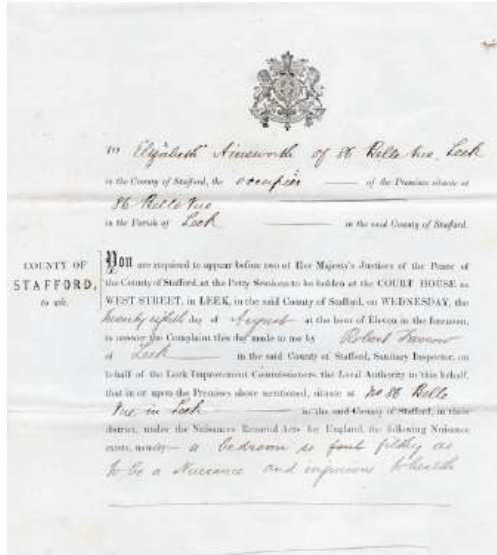 TO Elizabeth Ainsworth of 86 Belle Vue, Leek
in the County of Stafford, the occupier of the Premises situate at
86 Belle Vue
in the Parish of Leek in the said County of Stafford.
COUNTY OF
STAFFORD,
to wit.
You are required to appear before two of Her Majesty's Justices of the Peace of
the County of Stafford, at the Petty Sessions to be holden at the COURT HOUSE in
WEST STREET, in LEEK, in the said County of Stafford, on WEDNESDAY, the
twenty eighth day of August at the hour of Eleven in the forenoon,
to answer the Complaint this day made to me by Robert Farrow
of Leek in the said County of Stafford, Sanitary Inspector, on
behalf of the Leek Improvement Commissioners, the Local Authority in this behalf,
that in or upon the Premises above mentioned, situate at No 86 Belle
Vue in Leek in the said County of Stafford, in their
district, under the Nuisances Removal Acts for England, the following Nuisance
exists, namely:— a bedroom so foul filthy as
to be a Nuisance and injurious to health